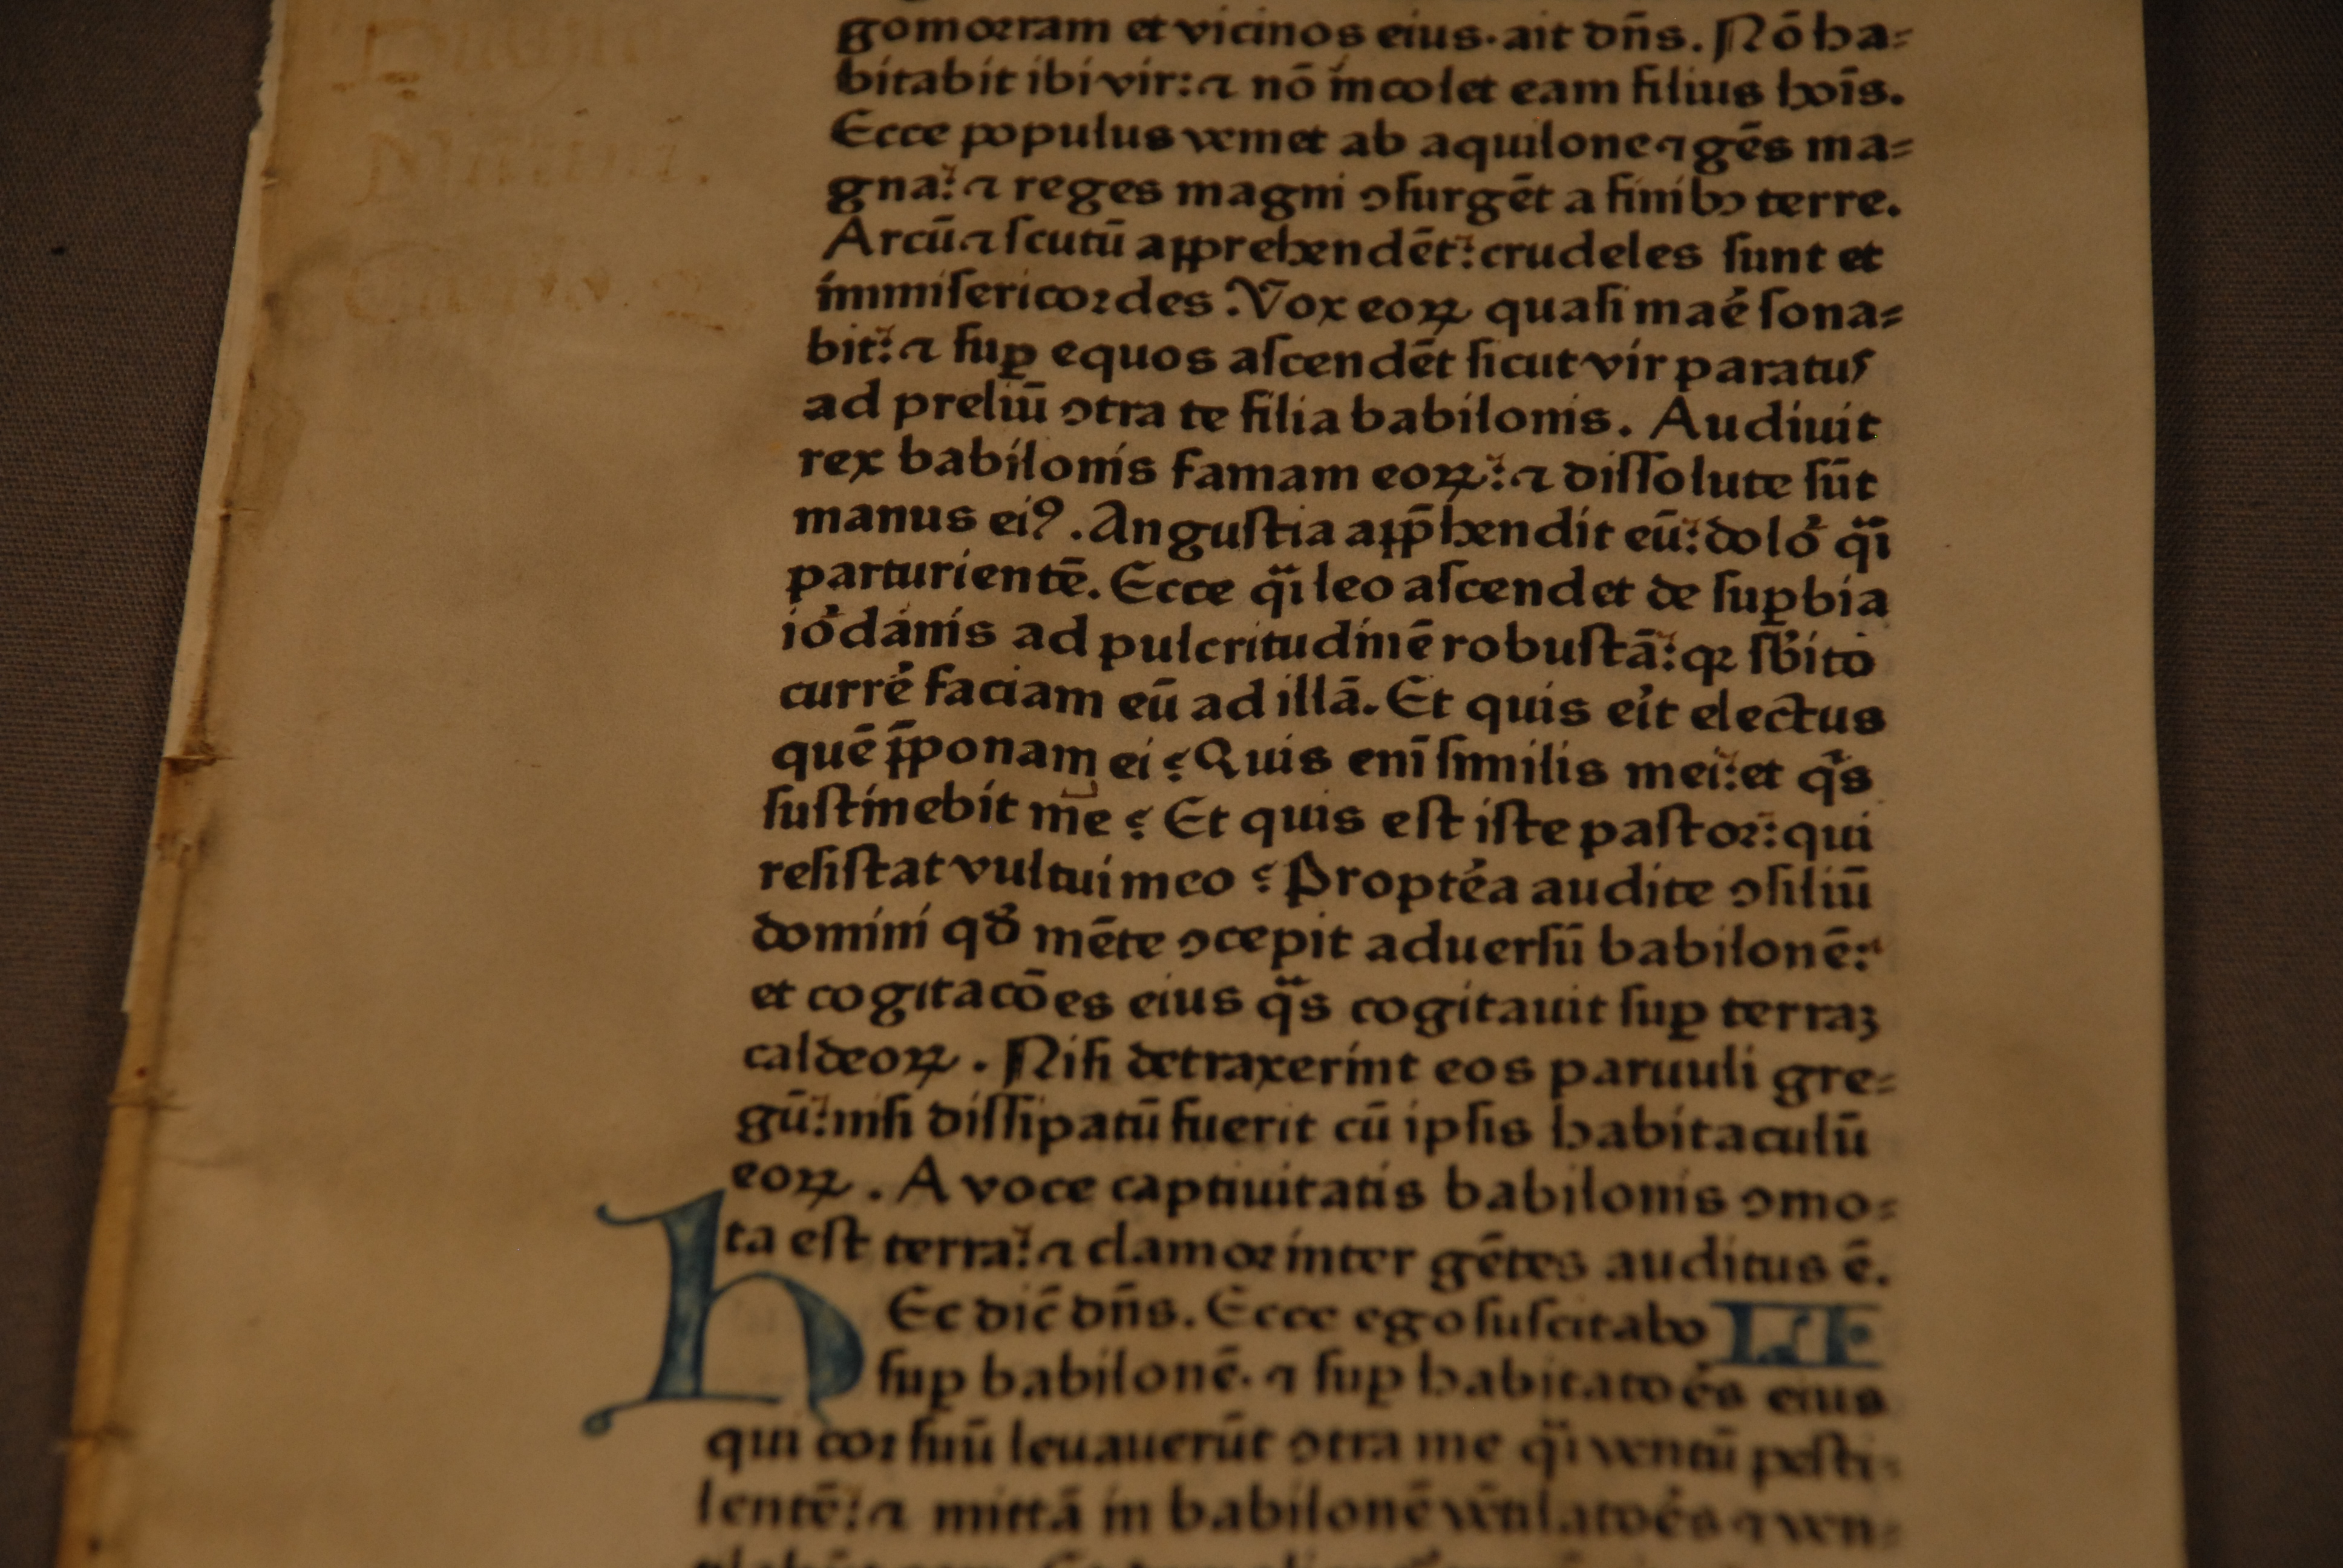 gomorram et vicinos eius. ait dn̄s. Nō ha⸗
bitabit ibi vir: ⁊ nō incolet eam filius hoīs.
Ecce populus veniet ab aquilone ⁊ gēs ma⸗
gna: ⁊ reges magni ↄſurgēt a finibꝫ terre.
Arcū ⁊ ſcutū apprehendēt: crudeles ſunt et
immiſericordes: Vox eoꝝ quaſi maꝛ̛e ſona⸗
bit: ⁊ ſuꝑ equos aſcendēt ſicut vir paratus
ad preliū ↄtra te filia babilonis. Audiuit
rex babilonis famam eoꝝ: ⁊ diſſolute ſūt
manus eiꝰ. Anguſtia app̄hendit eū: dolo᷑ qͣi
parturientē. Ecce qͣi leo aſcendet de ſuꝑbia
io᷑danis ad pulcritudinē robuſtā: qꝛ ſb̛ito
curre᷑ faciam eū ad illā. Et quis e᷑it electus
quē p̄ponam ei? Quis enī ſimilis mei: et qͥs
ſuſtinebit me? Et quis eſt iſte paſtor: qui
reſiſtat vultui meo? Propte᷑a audite ↄſiliū
domini qđ mēte ↄcepit aduerſū babilonē:
et cogitacōes eius qͣs cogitauit ſuꝑ terraꝫ
caldeoꝝ. Niſi detraxerint eos paruuli gre⸗
gū: niſi diſſipatū fuerit cū ipſis habitaculū
eoꝝ. A voce captiuitatis babilonis ↄmo⸗
ta eſt terra: ⁊ clamor inter gētes auditus ē.
hEc dic̄ dn̄s. Ecce ego ſuſcitabo LI
ſuꝑ babilonē. ⁊ ſuꝑ habitato᷑es eius
qui cor ſuū leuauerūt ↄtra me qͣi ventū peſti⸗
lentē: ⁊ mittā in babilonē vētilato᷑es ⁊ ven⸗